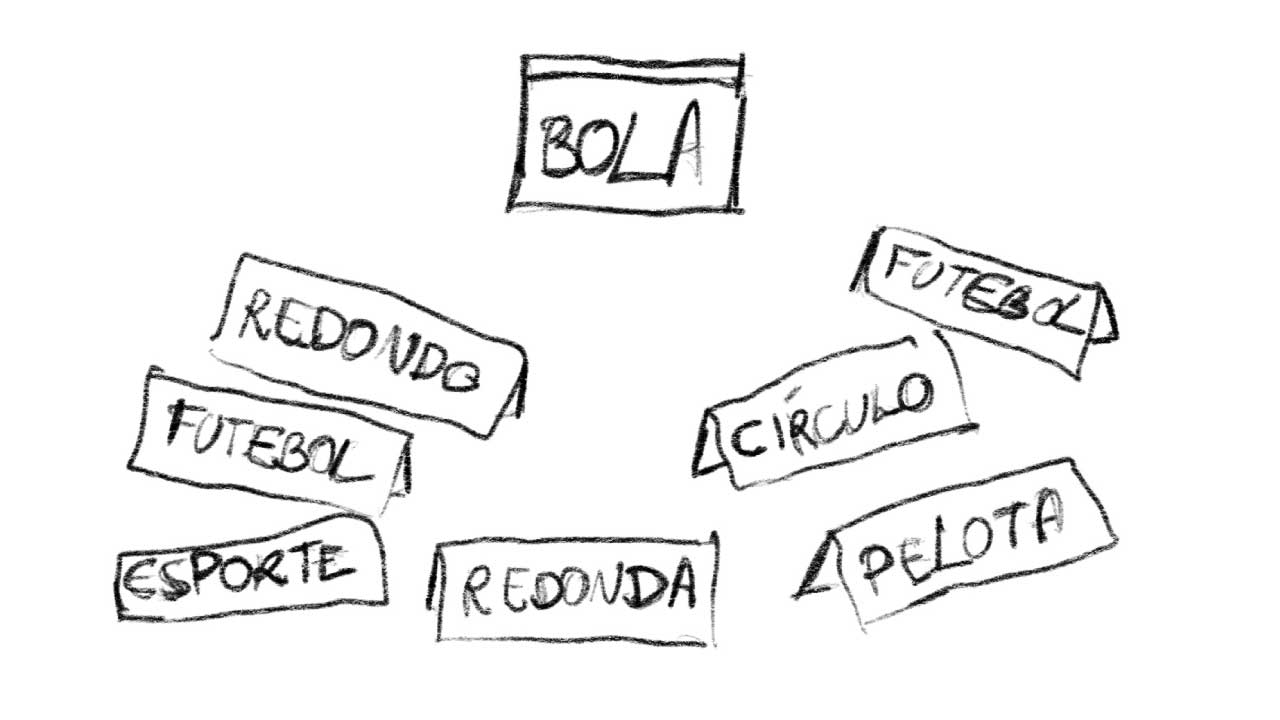 BOLA
REDONDO
FUTEBOL
ESPORTE
REDONDA
FUTEBOL
CÍRCULO
PELOTA